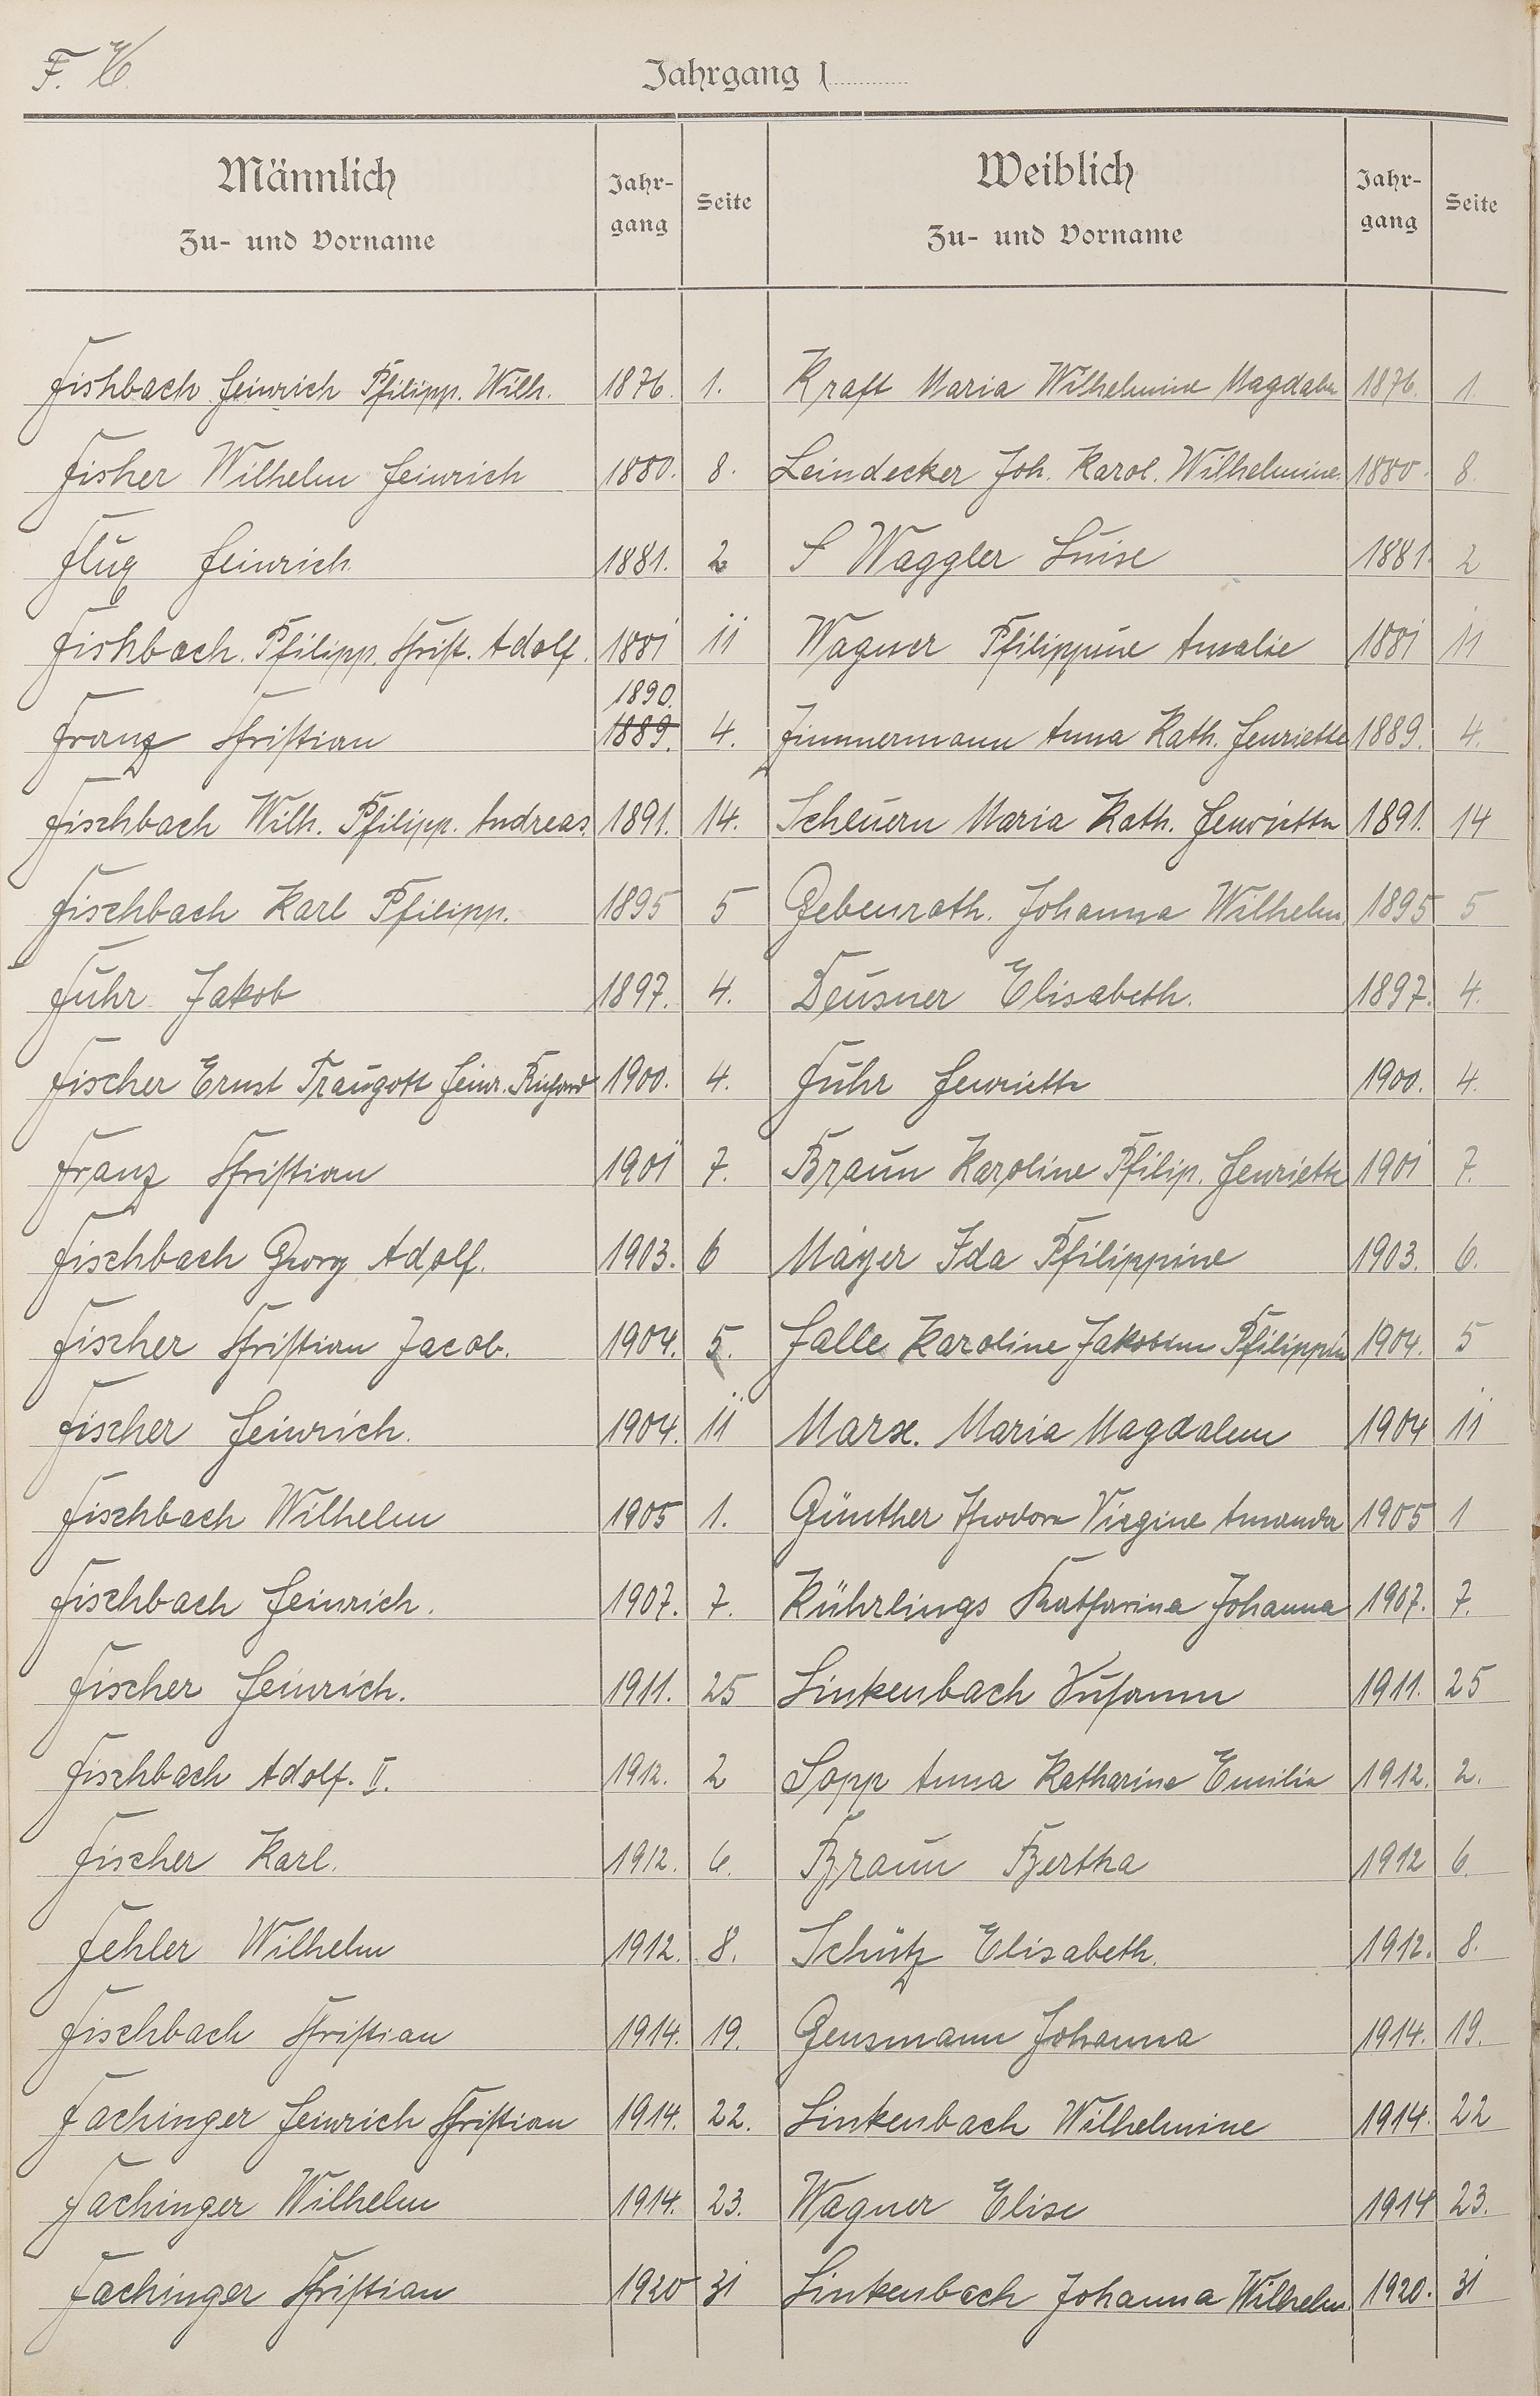 F. K.
Jahrgang 1
Männlich Jahr- Seite Weiblich Jahr- Seite
Zu- und Vorname gang Zu- und Vorname gang
Fishbach Heinrich Philipp. Wilh. 1876. 1. Kraft Maria Wilhelmine Magdalen 1876. 1.
Fisher Wilhelm Heinrich 1880. 8. Leindecker Joh. Karol. Wilhelmine. 1880. 8.
Flug Heinrich. 1881. 2 Waggler Luise 1881. 2
Fishbach. Philipp. Christ. Adolf. 1881 11 Wagner Philippine Amalie 1881 11
1890.
Franz Christian 1889. 4. Zimmermann Anna Kath. Henriette 1889. 4.
Fischbach Wilh. Philipp. Andreas. 1891. 14. Scheuern Maria Kath. Henriette 1891. 14
Fischbach Karl Philipp. 1895 5 Gebenrath. Johanna Wilhelm. 1895 5
Fuhr Jakob 1897. 4. Deusner Elisabeth. 1897. 4.
Fischer Ernst Traugott Heinr. Richard 1900. 4. Fuhr Henriette 1900. 4.
Franz Christian 1901 7. Braun Karoline Philip. Henriette 1901 7.
Fischbach Georg Adolf. 1903. 6 Mayer Ida Philippine 1903. 6.
Fischer Christian Jacob. 1904. 5. Halle Karoline Jakobine Philippin 1904. 5
Fischer Heinrich. 1904. 11 Marx. Maria Magdalene 1904 11
Fischbach Wilhelm 1905 1. Günther Theodora Virgine Amanda 1905 1
Fischbach Heinrich. 1907. 7. Kührlings Katharina Johanna 1907. 7.
Fischer Heinrich. 1911. 25 Linkenbach Susanne 1911. 25
Fischbach Adolf. II. 1912. 2 Sopp Anna Katharine Emilie 1912. 2.
Fischer Karl. 1912. 6. Braun Bertha 1912 6.
Fehler Wilhelm 1912. 8. Schütz Elisabeth. 1912. 8.
Fischbach Christian 1914. 19. Gensmann Johanna 1914. 19.
Fachinger Heinrich Christian 1914. 22. Linkenbach Wilhelmine 1914. 22
Fachinger Wilhelm 1914. 23. Wagner Elise 1914 23.
Fachinger Christian 1920 31 Linkenbach Johanna Wilhelm. 1920. 31